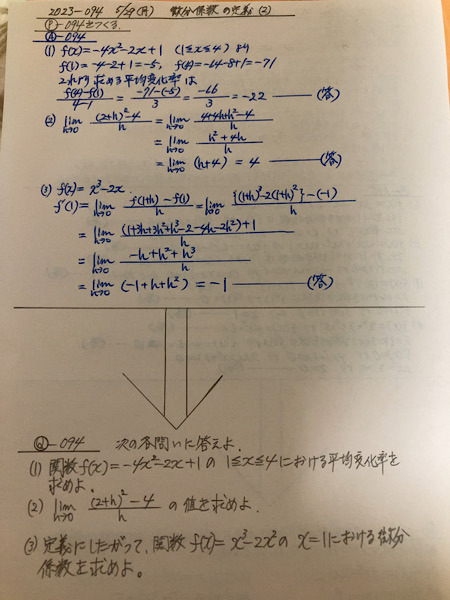 2023-094 5/29(月) 微分係数の定義(2)
Ⓟ-094をつくる.
Ⓐ-094
(1) f(x)=-4x²-2x+1 (1≦x≦4) より
f(1)=-4-2+1=-5, f(4)=-64-8+1=-71
これより求める平均変化率は
(f(4)-f(1))/(4-1) = (-71-(-5))/3 = -66/3 = -22 ―(答)
(2) lim_{h→0} ((2+h)²-4)/h = lim_{h→0} (4+4h+h²-4)/h
= lim_{h→0} (h²+4h)/h
= lim_{h→0} (h+4) = 4 ―(答)
(3) f(x)=x³-2x
f'(1)= lim_{h→0} (f(1+h)-f(1))/h = lim_{h→0} ({(1+h)³-2(1+h)²}-(-1))/h
= lim_{h→0} ((1+3h+3h²+h³-2-4h-2h²)+1)/h
= lim_{h→0} (-h+h²+h³)/h
= lim_{h→0} (-1+h+h²) = -1 ―(答)
Ⓠ-094 次の各問いに答えよ.
(1) 関数f(x)=-4x²-2x+1 の 1≦x≦4における平均変化率を
求めよ。
(2) lim_{h→0} ((2+h)²-4)/h の値を求めよ.
(3) 定義にしたがって、関数 f(x)=x³-2x²の x=1における微分
係数を求めよ。